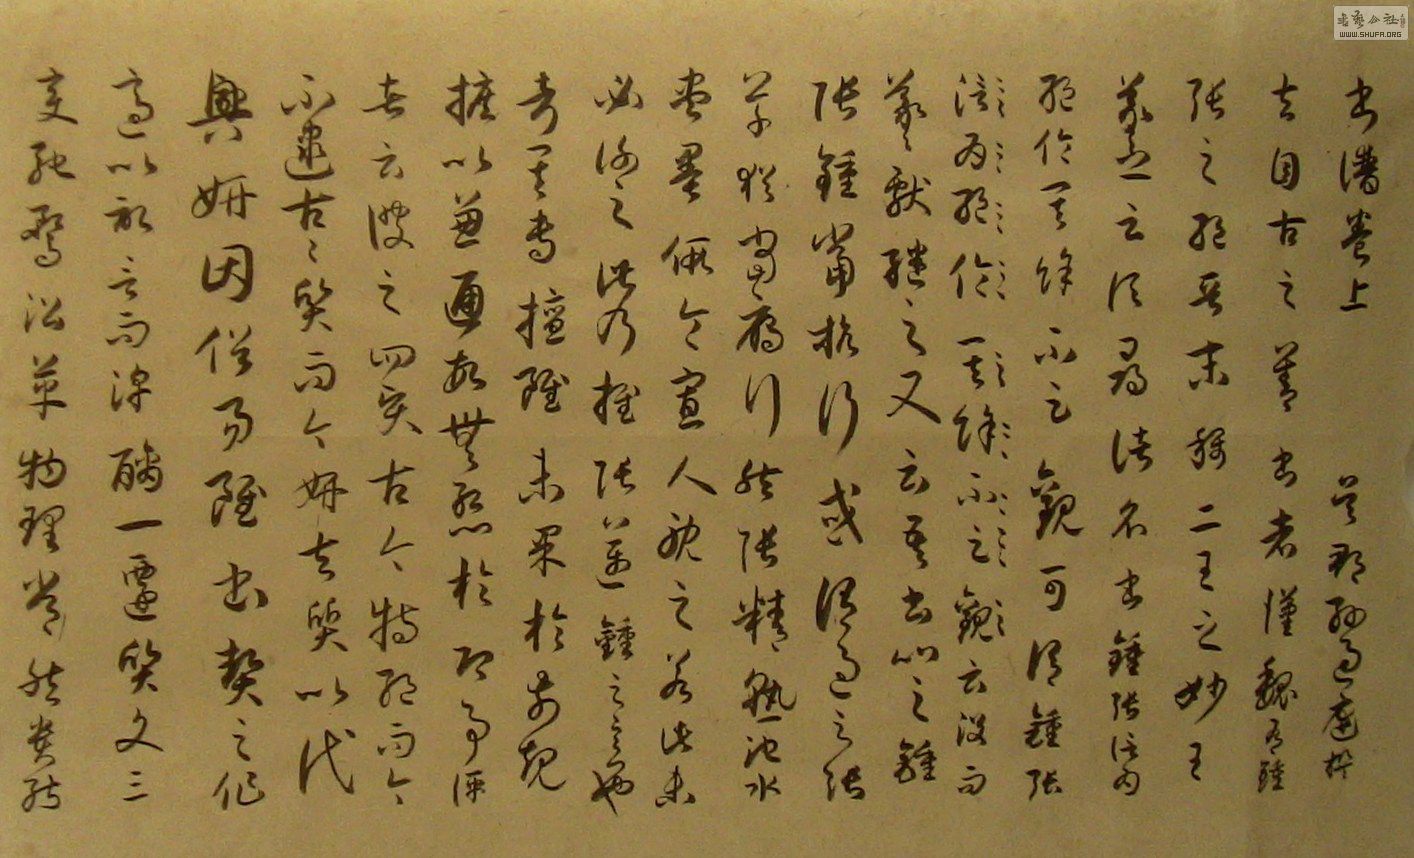 書譜卷上 吳郡孫過庭撰
夫自古之善書者漢魏有鍾
張之絕晉末稱二王之妙王
羲之云頃尋諸名書鍾張信為
絕倫其餘不足觀可謂鍾張
信為絕倫其餘不足觀云沒而
羲獻繼之又云吾書比之鍾
張鍾當抗行或謂過之張
草猶當鴈行然張精熟池水
盡墨假令寡人耽之若此未
必謝之此乃推張邁鍾之意也
考其專擅雖未果於前規
摭以兼通故無慙於即事評
者云彼之四賢古今特絕而今
不逮古古質而今妍夫質以代
興妍因俗易雖書契之作
適以記言而淳醨一遷質文三
變馳騖沿革物理常然貴能
書藝公社
WWW.SHUFA.ORG